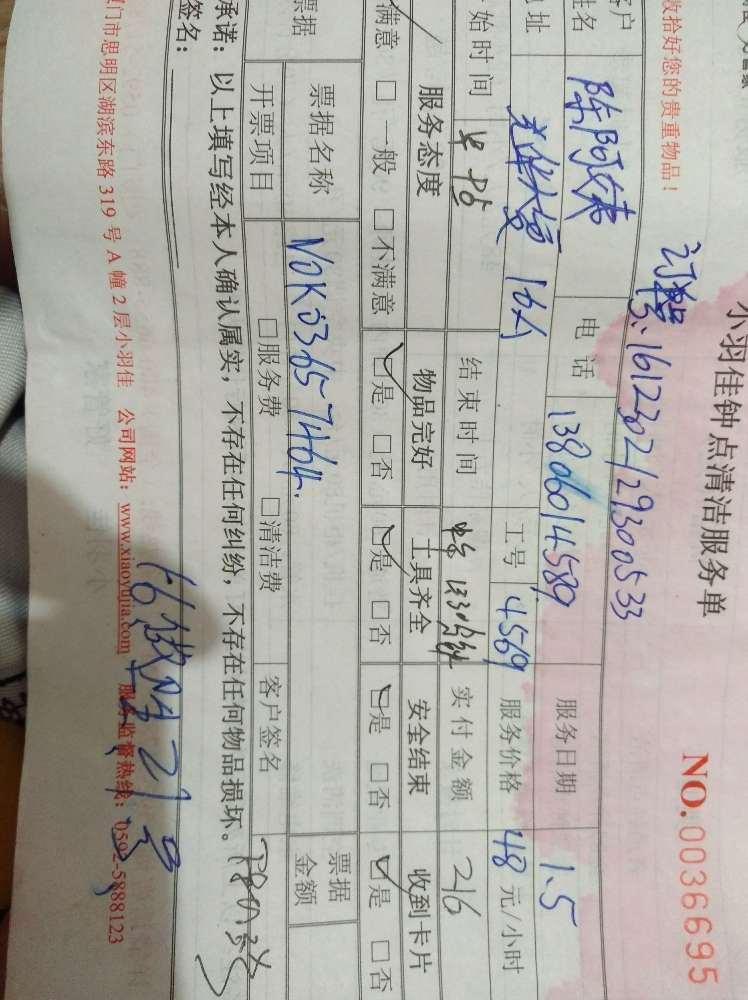 小羽佳钟点清洁服务单
NO.0036695
收拾好您的贵重物品！
订单号：1612302129300533
客户姓名 电话 13806014589 服务日期 1.5
地址 光华大厦 16A 工号 4569 服务价格 48元/小时
开始时间 结束时间 实付金额 216
服务态度 物品完好 工具齐全 安全结束 收到卡片
满意 □一般 □不满意 ☑是 □否 ☑是 □否 ☑是 □否 ☑是 □否
票据 票据名称 NOK03657464. 票据金额
开票项目 □服务费 □清洁费 客户签名
承诺：以上填写经本人确认属实，不存在任何纠纷，不存在任何物品损坏。
签名：
厦门市思明区湖滨东路 319 号 A 幢 2 层小羽佳 公司网站：www.xiaoyujia.com 服务监督热线：0592-5888123